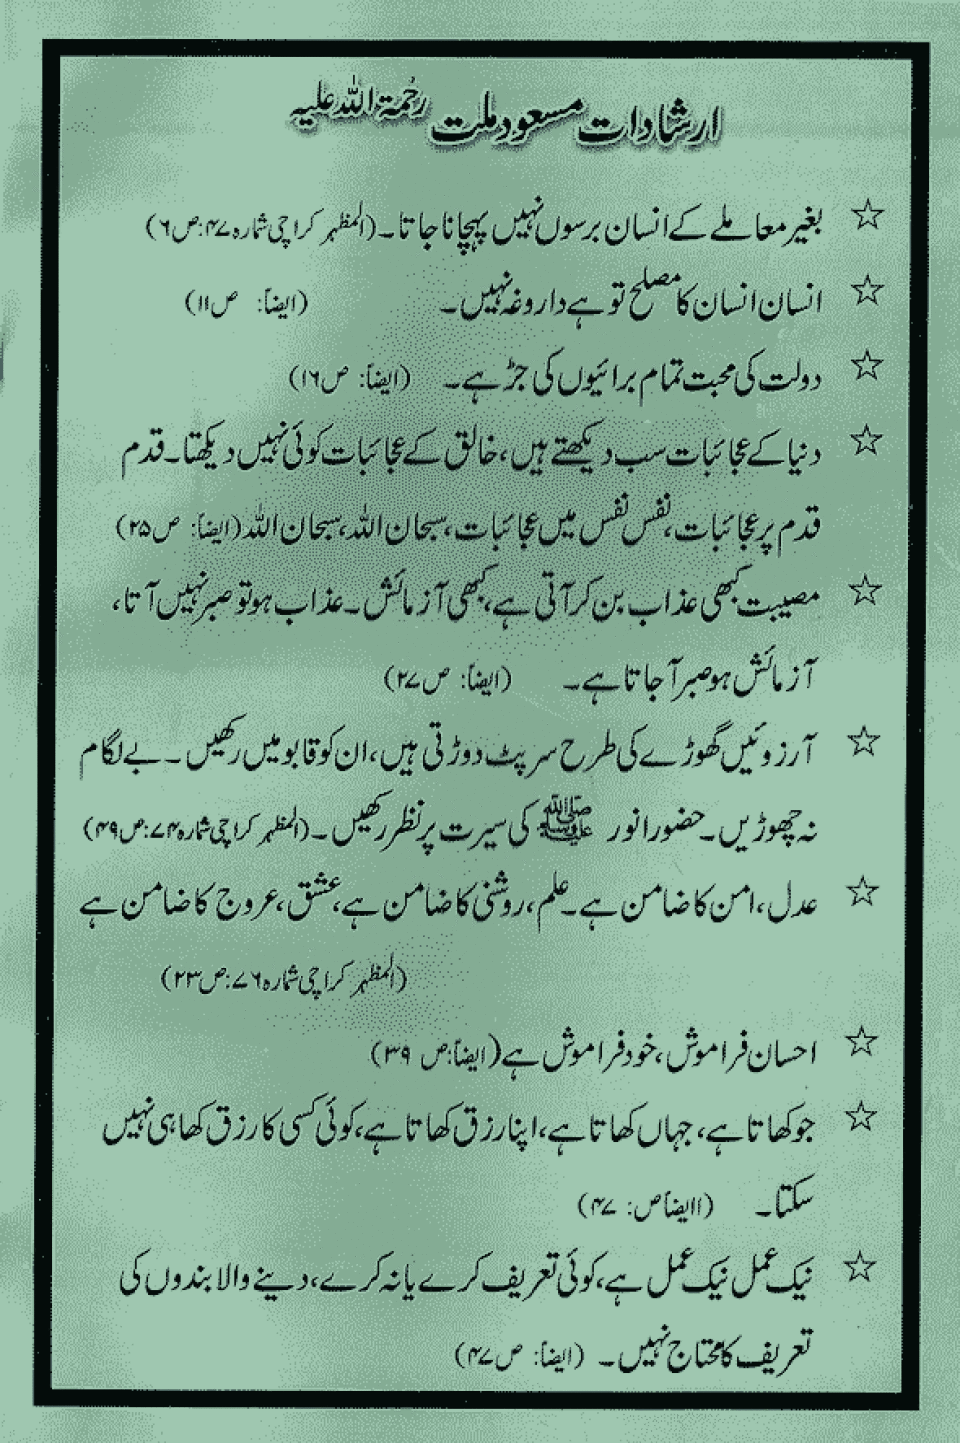 ارشادات مسعود ملت رحمۃ اللہ علیہ
☆ بغیر معاملے کے انسان برسوں نہیں پہچانا جاتا۔ (المظہر کراچی شمارہ ۴۷:ص۶)
☆ انسان انسان کا مصلح تو ہے داروغہ نہیں۔ (ایضاً: ص۱۱)
☆ دولت کی محبت تمام برائیوں کی جڑ ہے۔ (ایضاً: ص۱۶)
☆ دنیا کے عجائبات سب دیکھتے ہیں، خالق کے عجائبات کوئی نہیں دیکھتا۔ قدم
قدم پر عجائبات، نفس نفس میں عجائبات، سبحان اللہ، سبحان اللہ (ایضاً: ص۲۵)
☆ مصیبت کبھی عذاب بن کر آتی ہے، کبھی آزمائش۔ عذاب ہو تو صبر نہیں آتا،
آزمائش ہو صبر آجاتا ہے۔ (ایضاً: ص۲۷)
☆ آرزوئیں گھوڑے کی طرح سرپٹ دوڑتی ہیں، ان کو قابو میں رکھیں۔ بے لگام
نہ چھوڑیں۔ حضور انور ﷺ کی سیرت پر نظر رکھیں۔ (المظہر کراچی شمارہ ۷۴:ص۴۹)
☆ عدل، امن کا ضامن ہے۔ علم، روشنی کا ضامن ہے، عشق، عروج کا ضامن ہے
(المظہر کراچی شمارہ ۷۶:ص۲۳)
☆ احسان فراموش، خود فراموش ہے (ایضاً:ص ۳۹)
☆ جو کھاتا ہے، جہاں کھاتا ہے، اپنا رزق کھاتا ہے، کوئی کسی کا رزق کھا ہی نہیں
سکتا۔ (اایضاً ص: ۴۷)
☆ نیک عمل نیک عمل ہے، کوئی تعریف کرے یا نہ کرے، دینے والا بندوں کی
تعریف کا محتاج نہیں۔ (ایضاً: ص۴۷)